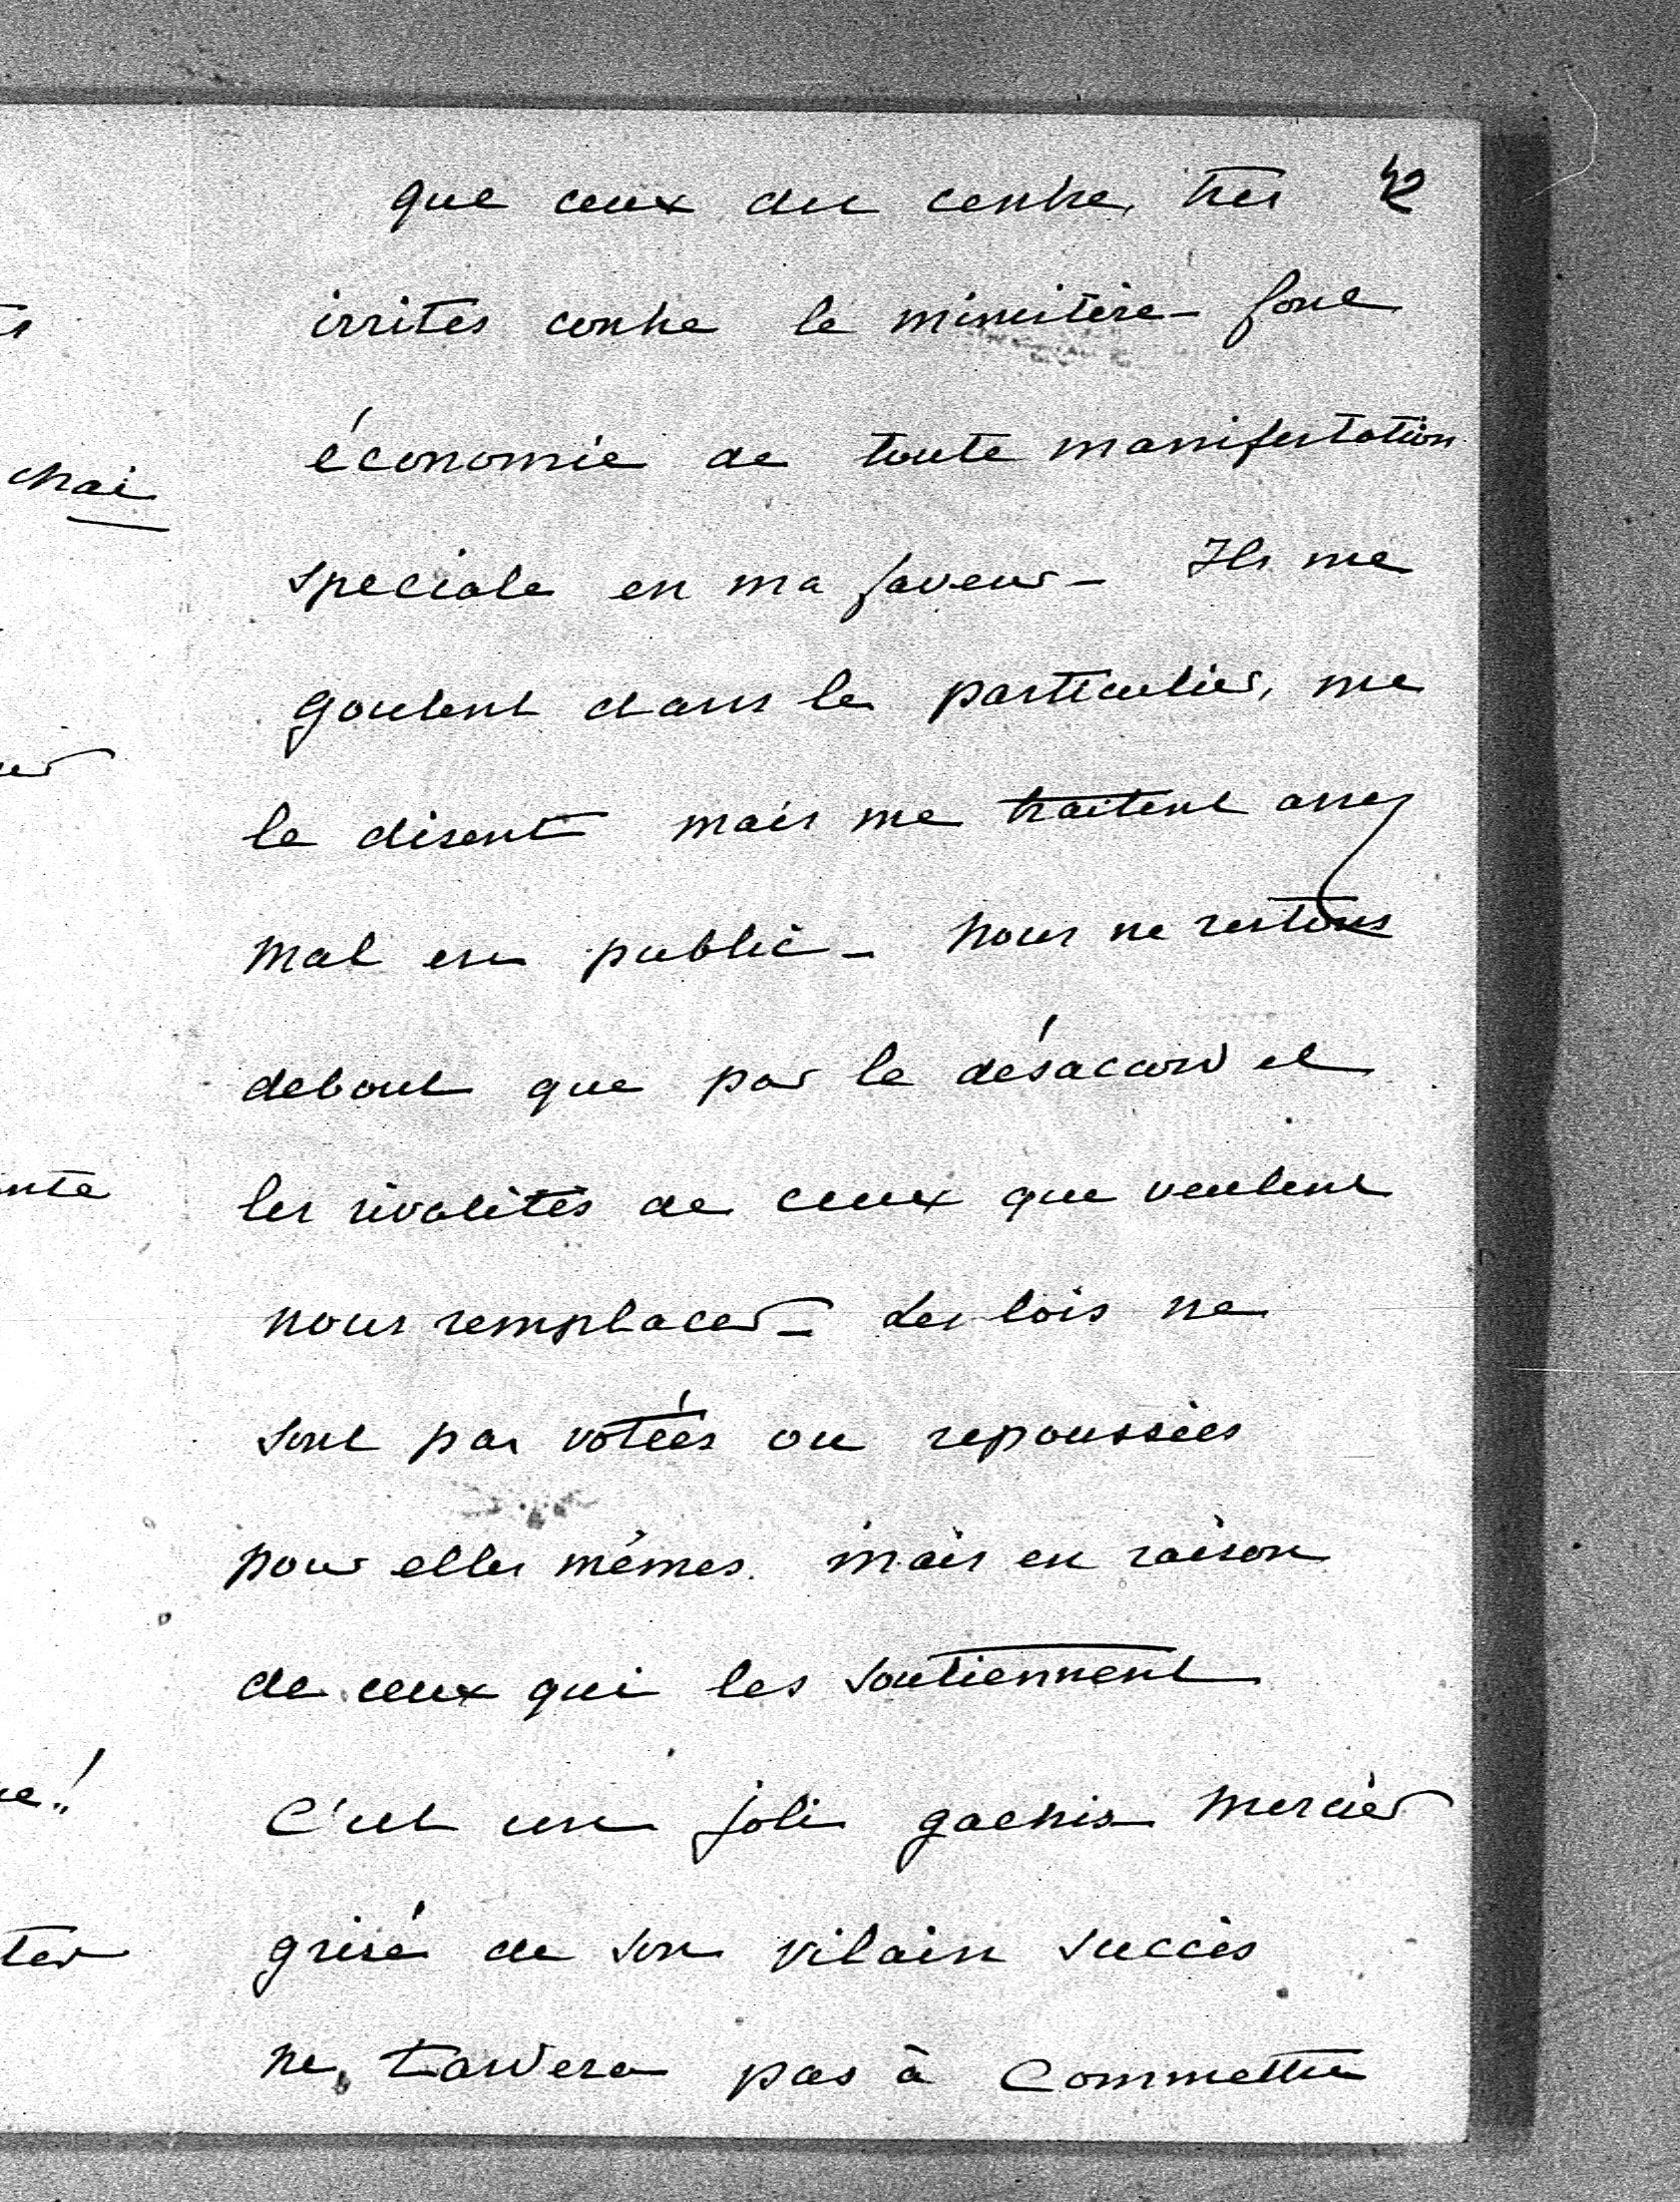 que ceux du centre, tres 42
irrités contre le ministère - font
économie de toute manifestation
speciale en ma faveur - Ils me
goutent dans le particulier, me
le disent mais me traitent assez
mal en public - Nous ne restons
debout que par le désaccord et
les rivalités de ceux que veulent
nous remplacer - Les lois ne
sont pas votées ou repoussées
pour elles mêmes. mais en raison
de ceux qui les soutiennent
C'est un joli gachis Mercier
grisé de son vilain succès
ne tardera pas à commettre